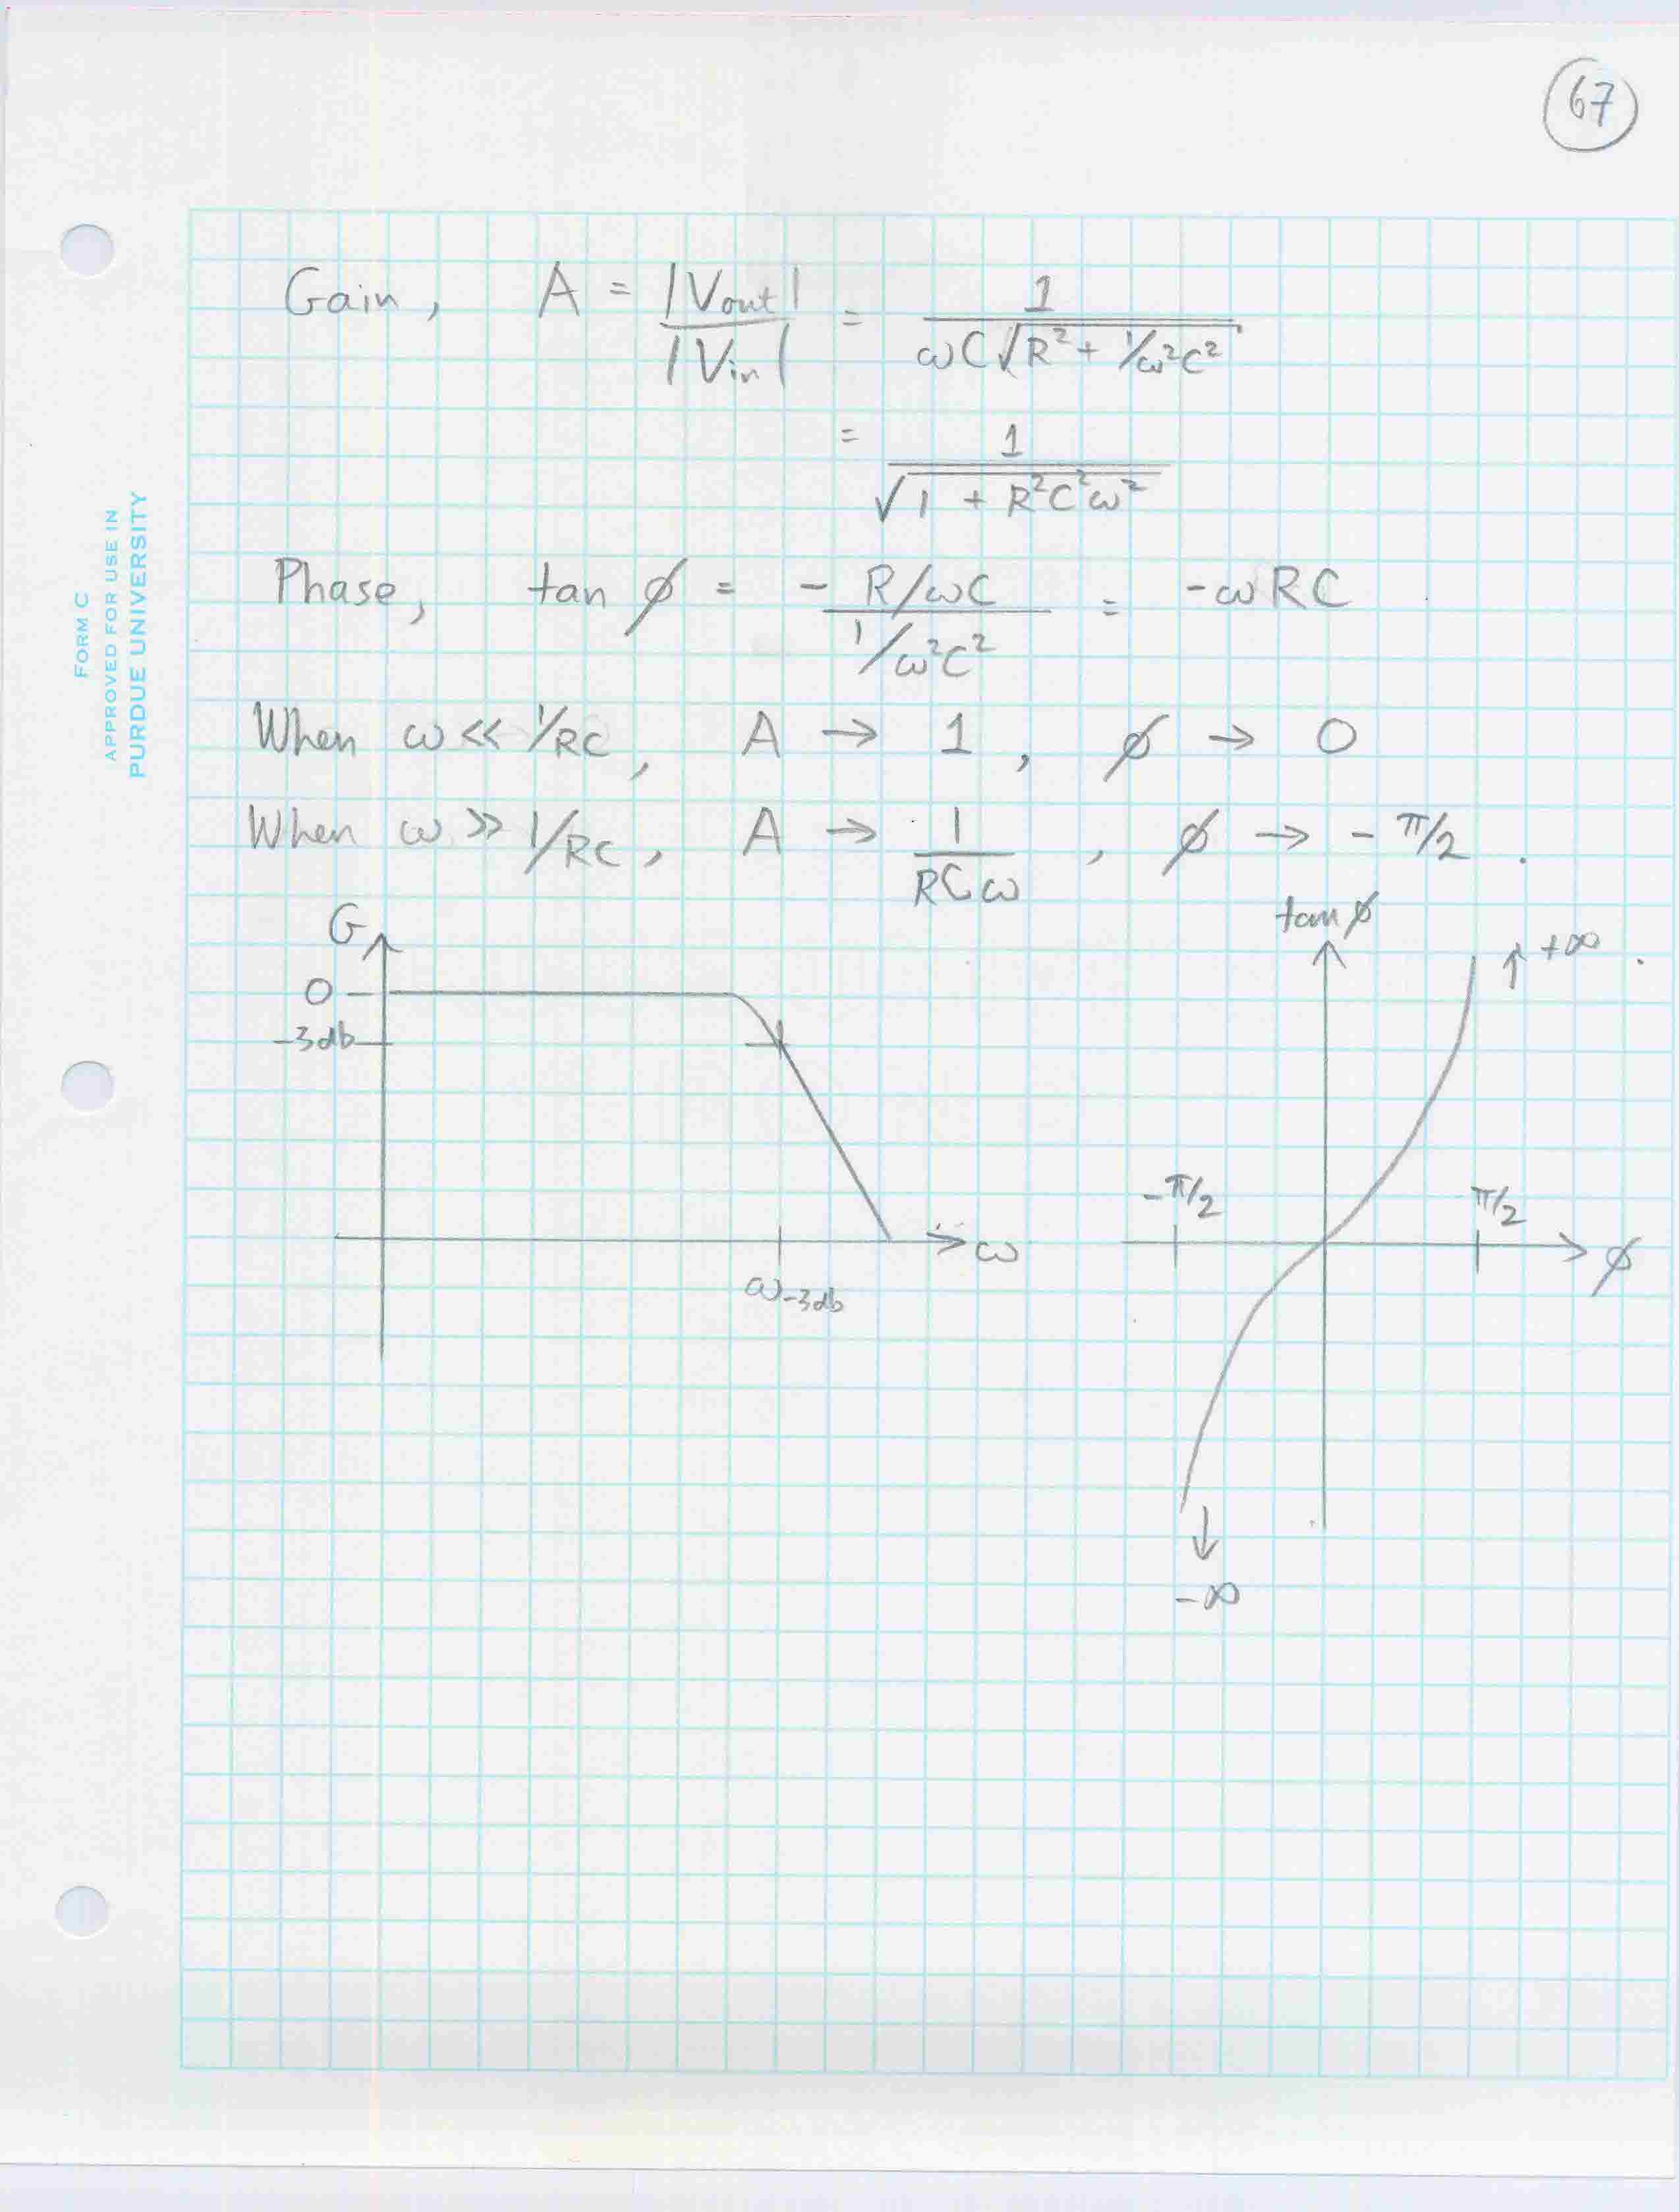 67
FORM C
APPROVED FOR USE IN
PURDUE UNIVERSITY
Gain, A = |Vout| / |Vin| = 1 / ωC√(R² + 1/ω²C²)
= 1 / √(1 + R²C²ω²)
Phase, tan ϕ = - R/ωC / 1/ω²C² = -ωRC
When ω << 1/RC, A → 1, ϕ → 0
When ω >> 1/RC, A → 1/RCω, ϕ → - π/2.
G
0
-3db
ω
ω-3db
tan ϕ
↑ +∞
-π/2
π/2
ϕ
↓
-∞